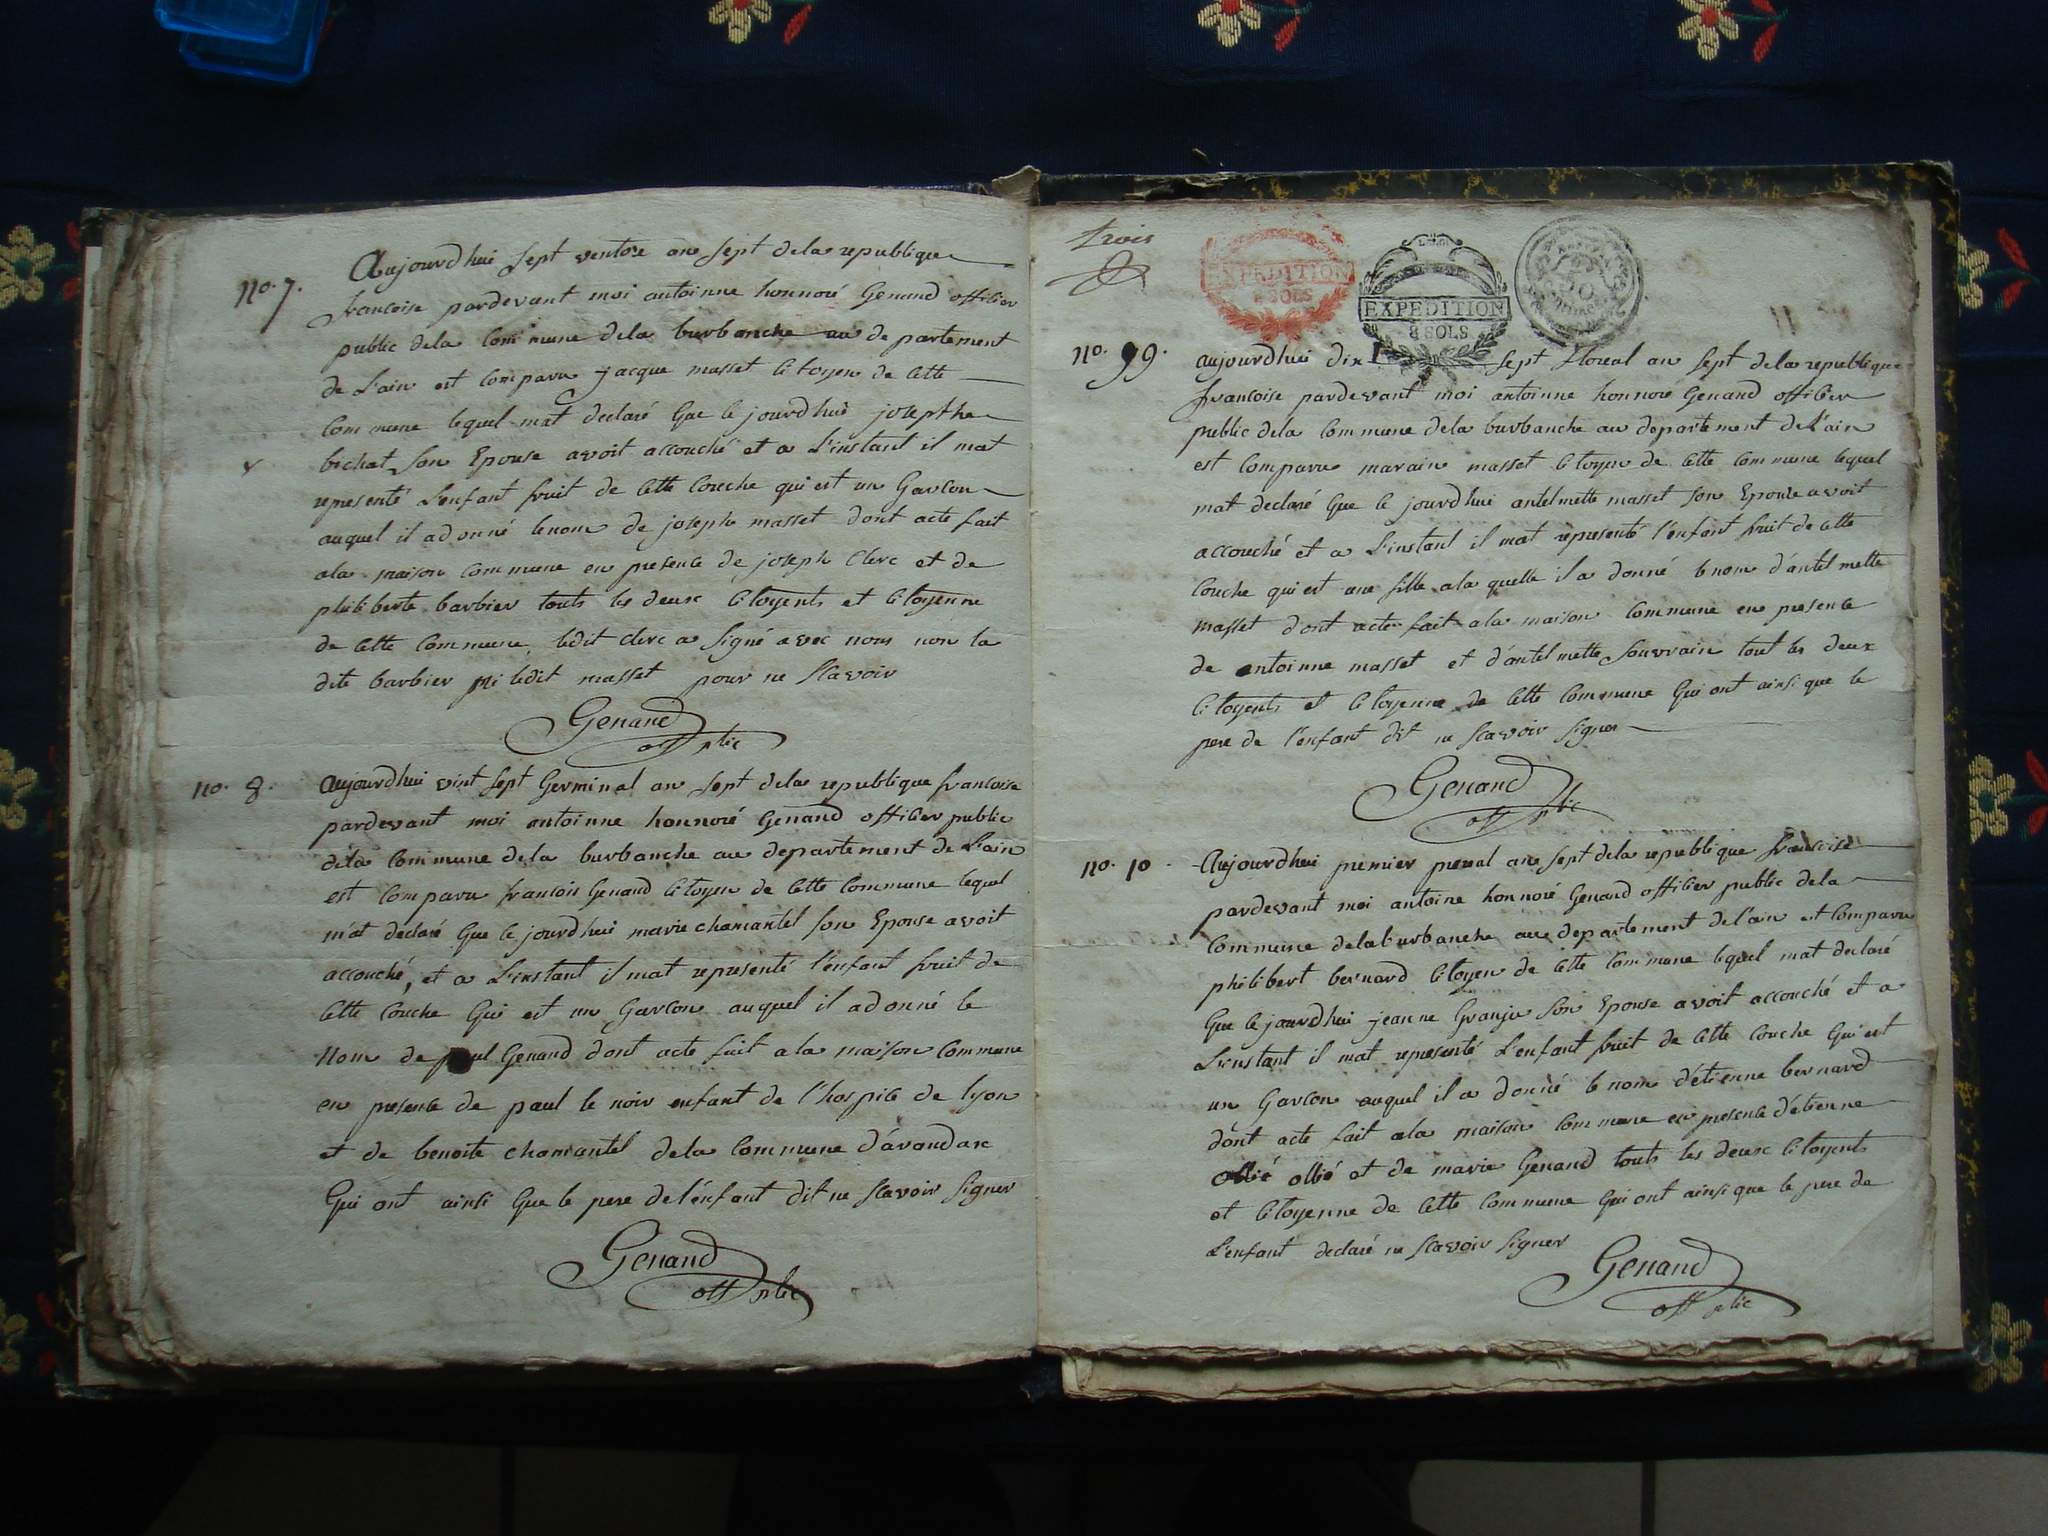 no. 7.
Aujourdhui sept ventose an sept dela republique
francoise pardevant moi antoinne honnoré Genand offitier
public dela Commune dela burbanche au departement
de L'ain est Comparu jacque masset Citoyen de Cette
Commune lequel mat declaré Que le jourdhui josepthe
bichat son Epouse avoit accouché et a L'instant il mat
representé L'enfant fruit de Cette Couche qui est un Garcon
auquel il adonné lenom de joseph masset dont acte fait
ala maison Commune en presente de joseph Clerc et de
philiberte barbier touts les deux Citoyents et Citoyenne
de Cette Commune, ledit clerc a signé avec nous non la
dite barbier ni ledit masset pour ne scavoir
Genand
off plic
no. 8.
aujourdhui vint sept Germinal an sept dela republique francoise
pardevant moi antoinne honnoré Genand offitier public
dela Commune dela burbanche au departement de L'ain
est Comparu francois Genand Citoyen de Cette Commune lequel
m'at declaré Que le jourdhui marie chamantel son Epouse avoit
accouché, et a L'instant il mat representé l'enfant fruit de
Cette Couche Qui est un Garcon auquel il adonné le
Nom de paul Genand dont acte fait ala maison Commune
en presente de paul le noir enfant de l'hospice de lyon
et de benoite chamantel dela Commune d'avandax
Qui ont ainsi Que le pere de l'enfant dit ne scavoir signer
Genand
off plic
trois
EXPEDITION
8 SOLS
EXPEDITION
8 SOLS
no. 99.
aujourdhui dix sept floreal an sept dela republique
francoise pardevant moi antoinne honnoré Genand offitier
public dela Commune dela burbanche au departement de L'ain
est Comparu marain masset Citoyen de Cette Commune lequel
mat declaré Que le jourdhui antelmette masset son Epouse avoit
accouché et a L'instant il mat representé l'enfant fruit de Cette
Couche qui est une fille ala quelle il a donné le nom d'antelmette
masset dont acte fait ala maison Commune en presente
de antoinne masset et d'antelmette souvrain tout les deux
Citoyents et Citoyenne de Cette Commune Qui ont ainsi que le
pere de l'enfant dit ne scavoir signer
Genand
off plic
no. 10
Aujourdhui premier prerial an sept dela republique francoise
pardevant moi antoine honnoré Genand offitier public dela
Commune dela burbanche au departement de l'ain est Comparu
philibert bernard Citoyen de Cette Commune lequel mat declaré
Que le jourdhui jeanne Granju son Epouse avoit accouché et a
L'instant il mat representé L'enfant fruit de Cette Couche Qui est
un Garcon auquel il a donné le nom d'étienne bernard
dont acte fait ala maison Commune en presente d'étienne
ollié et de marie Genand touts les deux Citoyents
et Citoyenne de Cette Commune Qui ont ainsi que le pere de
L'enfant declaré ne scavoir signer
Genand
off plic